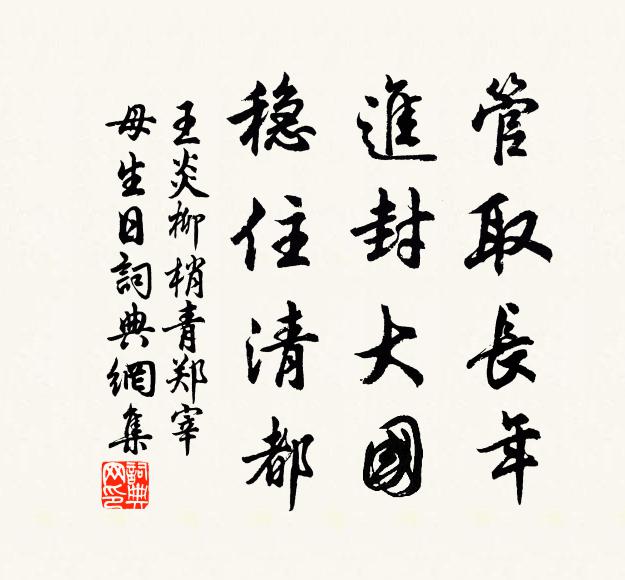 管取長年
進封大國
穏住清都
王炎柳梢青郑宰
母生日詞典網集
詞典网印